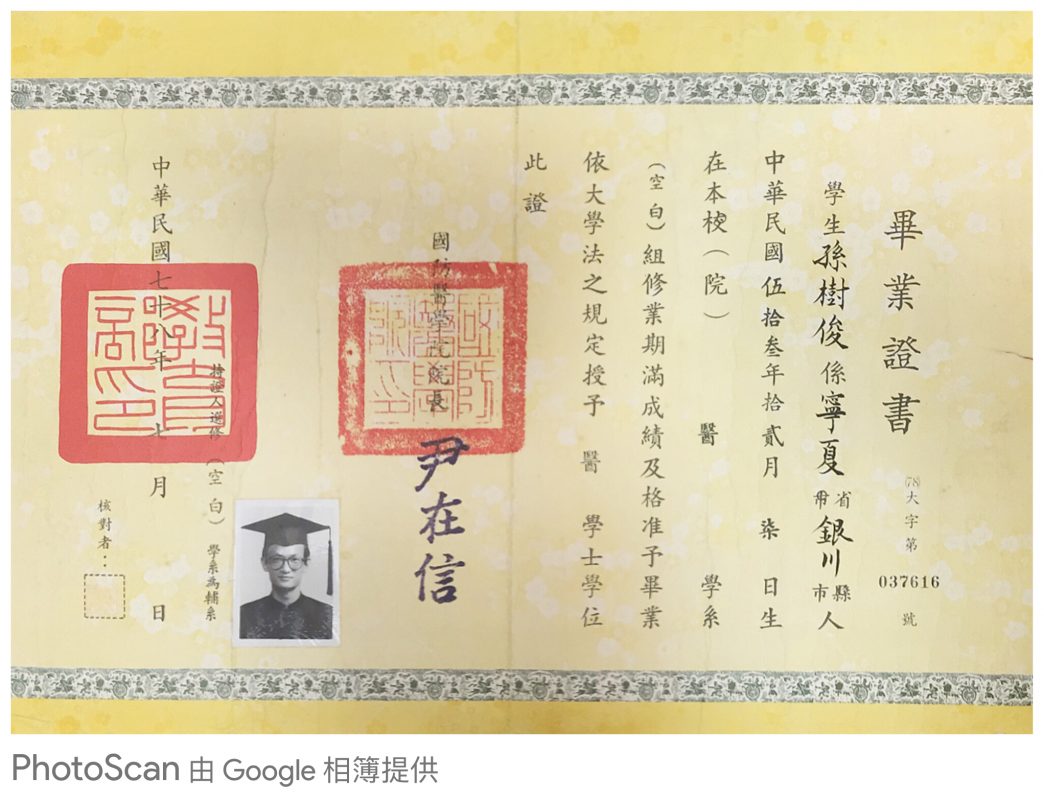 畢業證書
(78)大字第037616號
學生孫樹俊係寧夏省銀川縣市人
中華民國伍拾叁年拾貳月柒日生
在本校(院)醫學系
(空白)組修業期滿成績及格准予畢業
依大學法之規定授予醫學士學位
此證
國防醫學院院長尹在信
持證人選修(空白)學系為輔系
中華民國七十八年七月日
核對者：
PhotoScan 由 Google 相簿提供